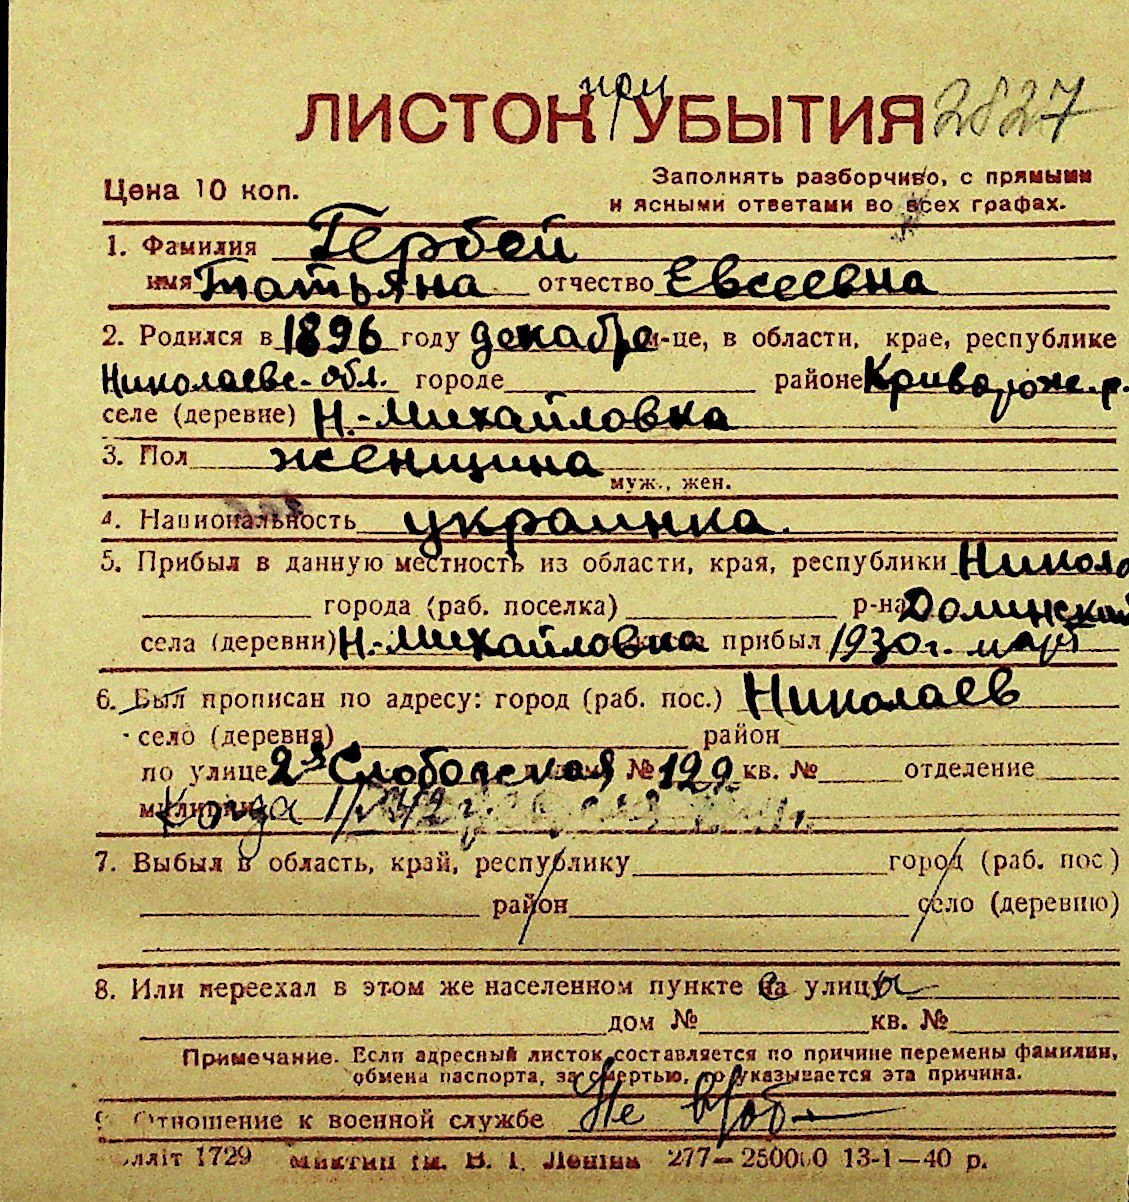 при
ЛИСТОК УБЫТИЯ 2827
Цена 10 коп.
Заполнять разборчиво, с прямыми
и ясными ответами во всех графах.
1. Фамилия Гербей
имя Татьяна отчество Евсеевна
2. Родился в 1896 году декабре м-це, в области, крае, республике
Николаевс. обл. городе районе Криворож. р.
селе (деревне) Н.-Михайловка
3. Пол женщина
муж., жен.
4. Национальность украинка.
5. Прибыл в данную местность из области, края, республики Никола
города (раб. поселка) р-на Долинский
села (деревни) Н.-Михайловка прибыл 1930 г. март
6. Был прописан по адресу: город (раб. пос.) Николаев
село (деревня) район
по улице 2я Слободская № 129 кв. № отделение
Когда
7. Выбыл в область, край, республику город (раб. пос)
район село (деревню)
8. Или переехал в этом же населенном пункте с улицы
дом № кв. №
Примечание. Если адресный листок составляется по причине перемены фамилии,
обмена паспорта, за смертью, то указывается эта причина.
9. Отношение к военной службе Не
1729 им. В. І. Леніна 277—250000 13-1—40 р.